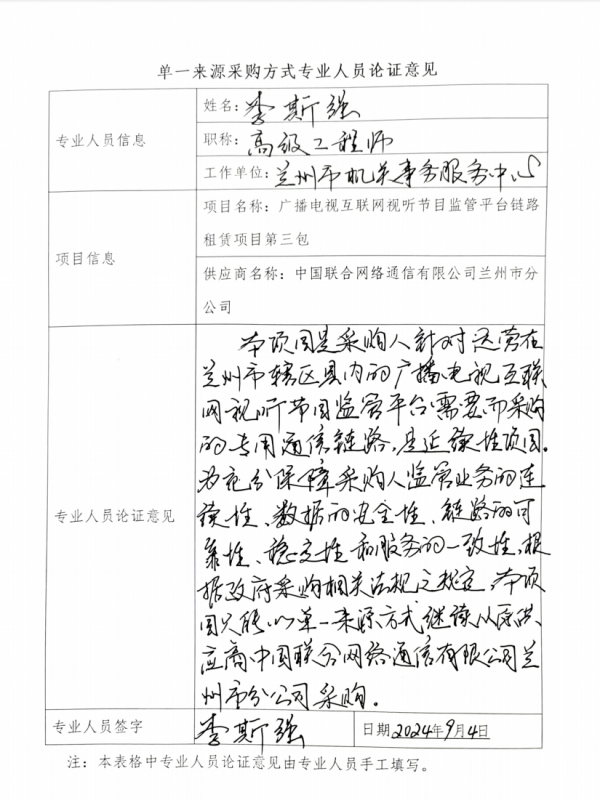 单一来源采购方式专业人员论证意见
专业人员信息
姓名：李斯强
职称：高级工程师
工作单位：兰州市机关事务服务中心
项目信息
项目名称：广播电视互联网视听节目监管平台链路
租赁项目第三包
供应商名称：中国联合网络通信有限公司兰州市分
公司
专业人员论证意见
本项目是采购人针对运营在
兰州市辖区县内的广播电视互联
网视听节目监管平台需要而采购
的专用通信链路，是延续性项目。
为充分保障采购人监管业务的连
续性、数据的安全性、链路的可
靠性、稳定性和服务的一致性，根
据政府采购相关法规之规定，本项
目只能以单一来源方式继续从原供
应商中国联合网络通信有限公司兰
州市分公司采购。
专业人员签字
李斯强
日期2024年9月4日
注：本表格中专业人员论证意见由专业人员手工填写。